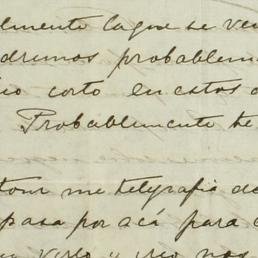 lmente la que se ve
dremos probableme
io corto en estos d
Probablemente te
tour me telegrafia de
pasa por acá para
verlo y